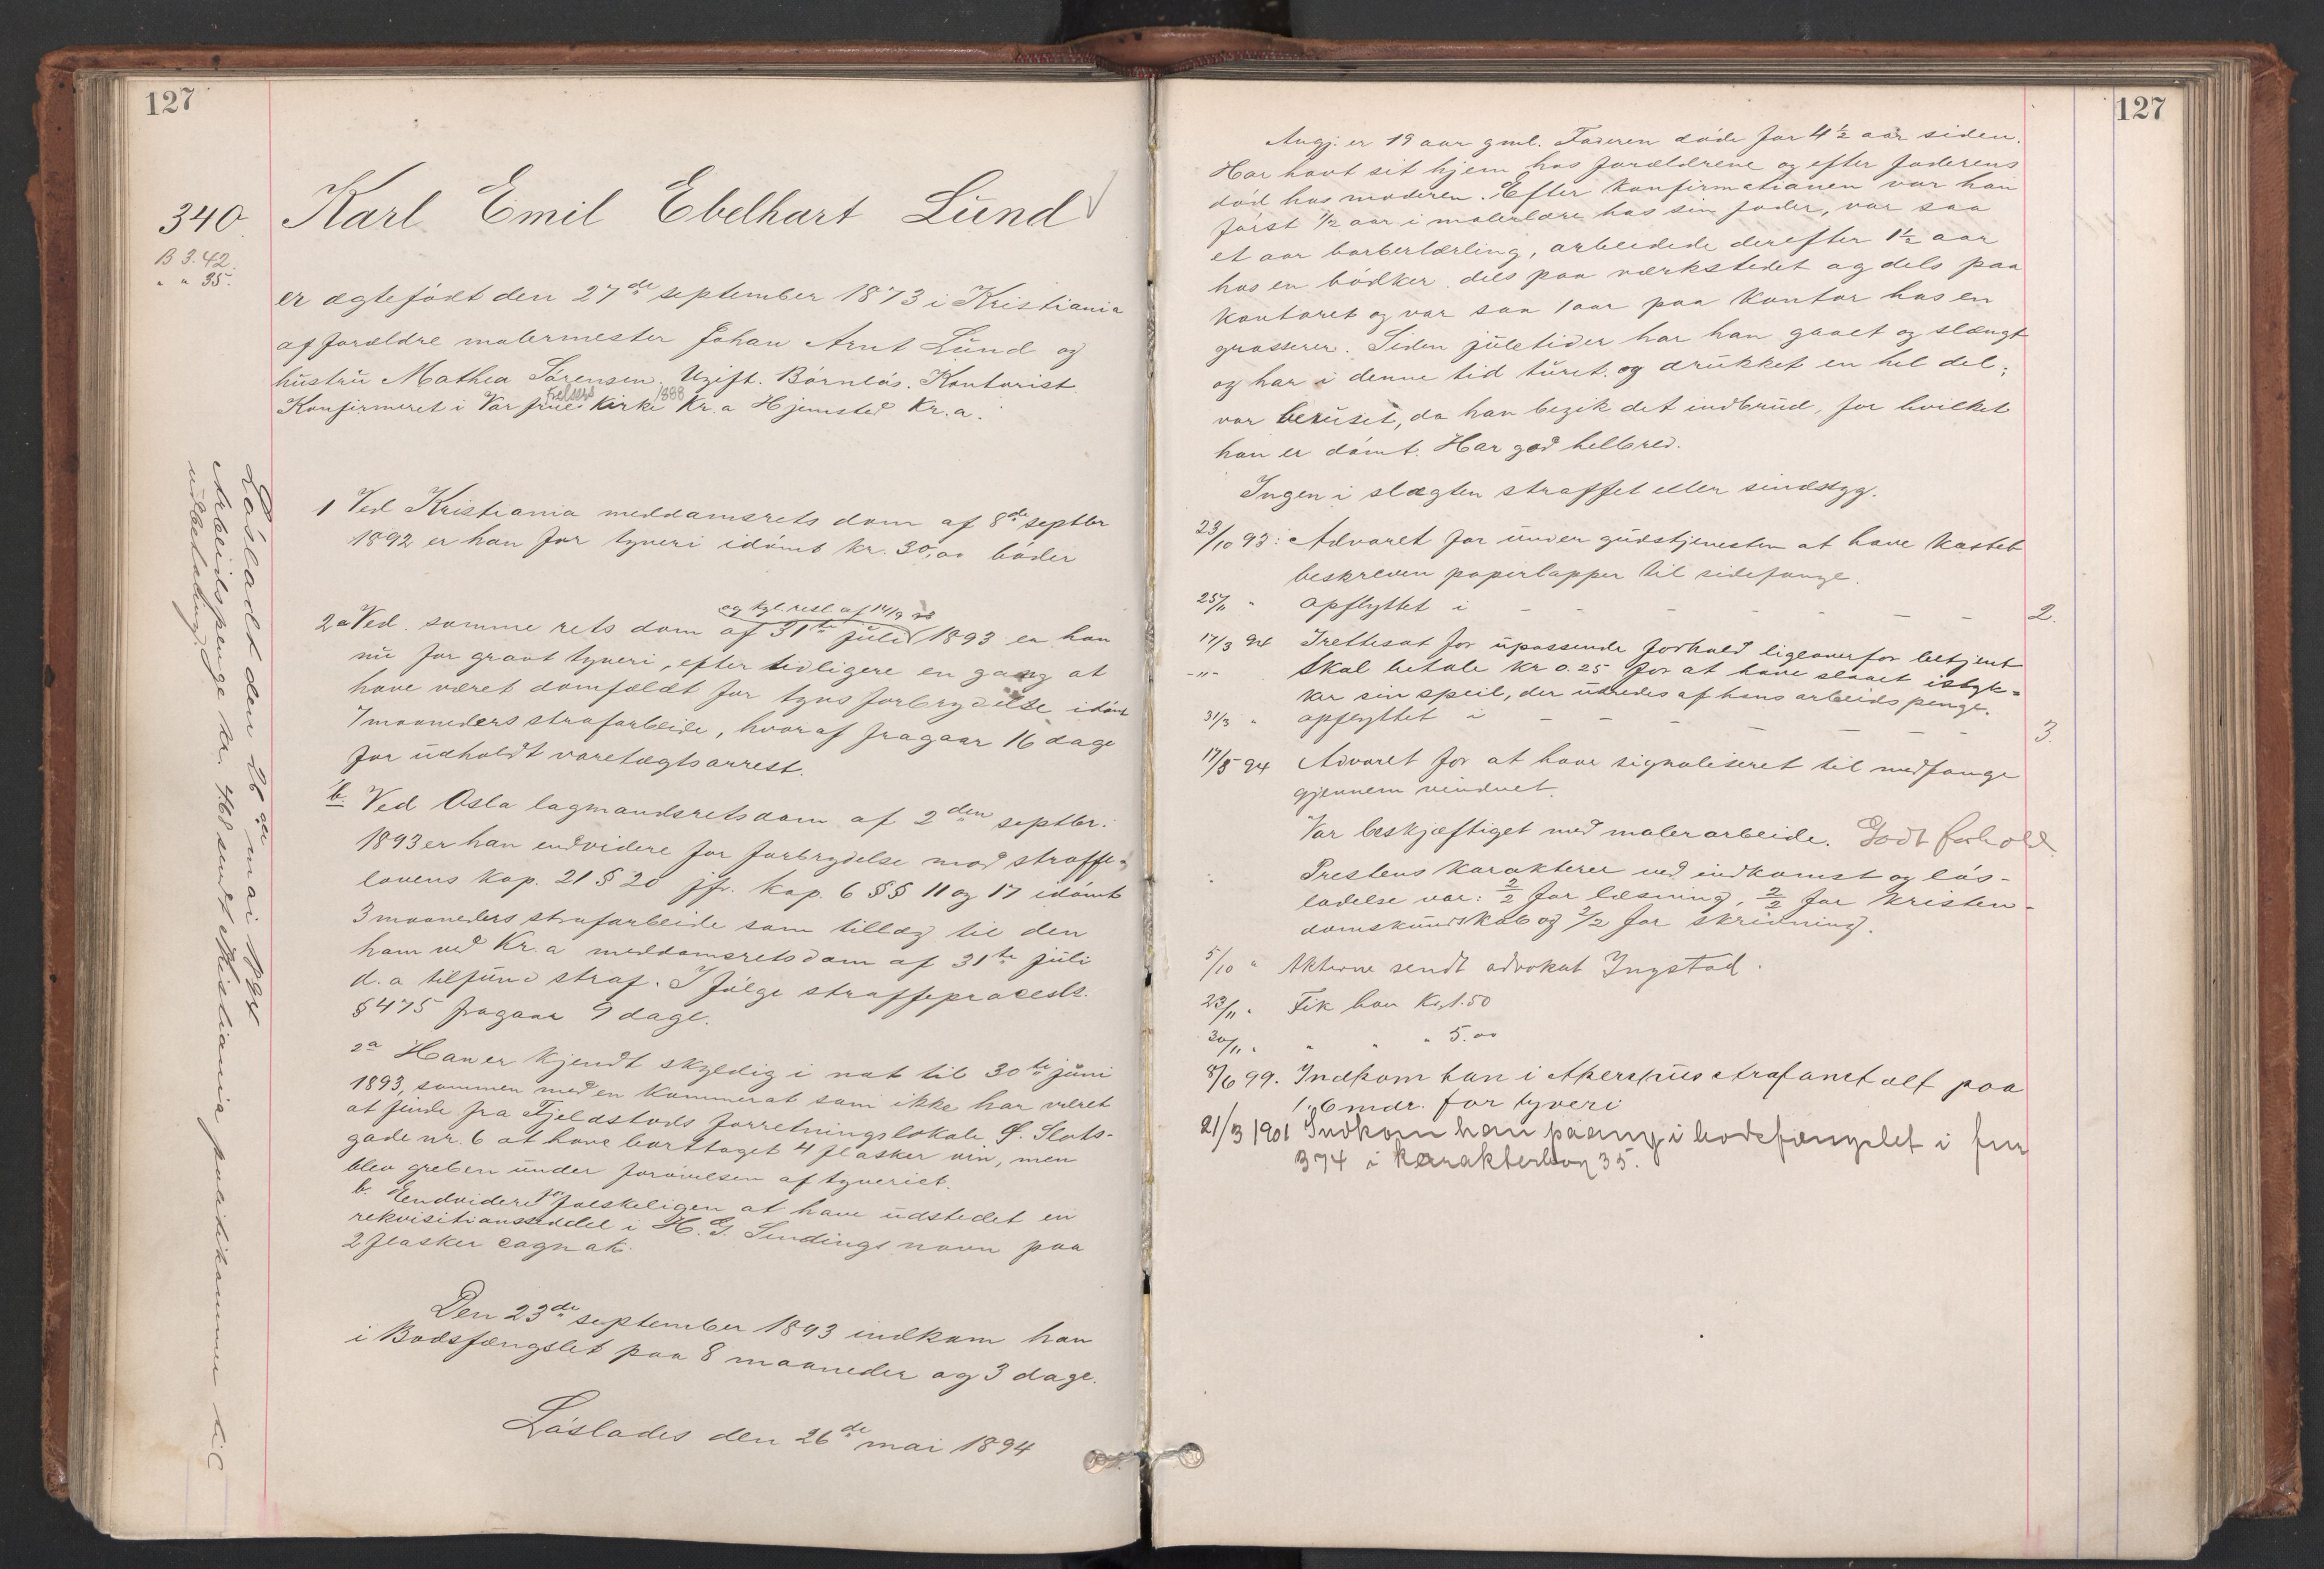 127
340
B 3.42.
" " 35.
Karl Emil Ebelhart Lund
er ægtefödt den 27de september 1873 i Kristiania
af forældre malermester Johan Arnt Lund og
hustru Mathea Sörensen. Ugift. Börnlös. Kontorist
Frelsers 1888
Konfirmeret i Vor frue kirke Kr.a Hjemsted Kr.a.
1 Ved Kristiania meddomsrets dom af 8de septbr
1892 er han for tyveri idömt kr. 30,00 böder
og kgl. resl. af 14/9 93
2a Ved samme rets dom af 31te juli 1893 er han
nu for grovt tyveri, efter tidligere en gang at
have været domfældt for tyvsforbrydelse idömt
7 maaneders strafarbeide, hvoraf fragaar 16 dage
for udholdt varetægtsarrest.
b. Ved Oslo lagmandsrets dom af 2den septbr.
1893 er han endvidere for forbrydelse mod straffe-
lovens kap. 21 § 20 jfr. kap. 6 §§ 11 og 17 idömt
3 maaneders strafarbeide som tillæg til den
ham ved Kr.a meddomsrets dom af 31te juli
d.a tilfund straf. I fölge straffeprocesl.
§ 475 fragaar 9 dage.
2a Han er kjendt skyldig i nat til 30te juni
1893, sammen med en kammerat som ikke har været
at finde fra Fjeldstads forretningslokale, S. Slots-
gade nr. 6 at have borttaget 4 flasker vin, men
blev greben under forövelsen af tyveriet.
b. Endvidere for falskeligen at have udstedet en
rekvisitionsseddel i H. G. Sendings navn paa
2 flasker cognak.
Den 23de september 1893 indkom han
i Bodsfængslet paa 8 maaneder og 3 dage.
Löslades den 26de mai 1894
Lösladt den 26de mai 1894
Arbeidspenge kr. 4.68 sendt Kristiania politikammer til
udbetaling.
127
Angj. er 19 aar gml. Faderen döde for 4 1/2 aar siden.
Har havt sit hjem hos forældrene og efter faderens
död hos moderen. Efter konfirmationen var han
först 1/2 aar i malerlære hos sin fader, var saa
et aar barberlærling, arbeidede derefter 1 1/2 aar
hos en bödker dels paa værkstedet og dels paa
kontoret og var saa 1 aar paa kontor hos en
grosserer. Siden juletider har han gaaet og slængt
og har i denne tid turet og drukket en hel del;
var beruset, da han begik det indbrud, for hvilket
han er dömt. Har god helbred.
Ingen i slægten straffet eller sindssyg.
23/10 93: Advaret for under gudstjenesten at have kastet
beskreven papirlapper til sidefange.
25/11 " opflyttet i - - - - - - - 2.
17/3 94 Irettesat for upassende forhold ligeoverfor betjent
- " - Skal betale kr 0.25 for at have slaaet istyk-
ker sin speil, der udredes af hans arbeidspenge.
31/3 " opflyttet i - - - - - - - 3.
17/5 94 Advaret for at have signaliseret til medfange
gjennem vinduet.
Var beskjæftiget med malerarbeide. Godt forhold.
Prestens karakterer ved indkomst og lös-
ladelse var: 2/2 for læsning, 2/2 for kristen-
domskundskab og 2/2 for skrivning.
5/10 " Akterne sendt advokat Ingstad.
23/11 " Fik han Kr. 1.50
30/11 " " " " 5.00
8/6 99. Indkom han i Akershus strafanstalt paa
1. 6 mdr. for tyveri
21/3 1901 Indkom han paany i bodsfængslet i fnr
374 i karakterbog 35.